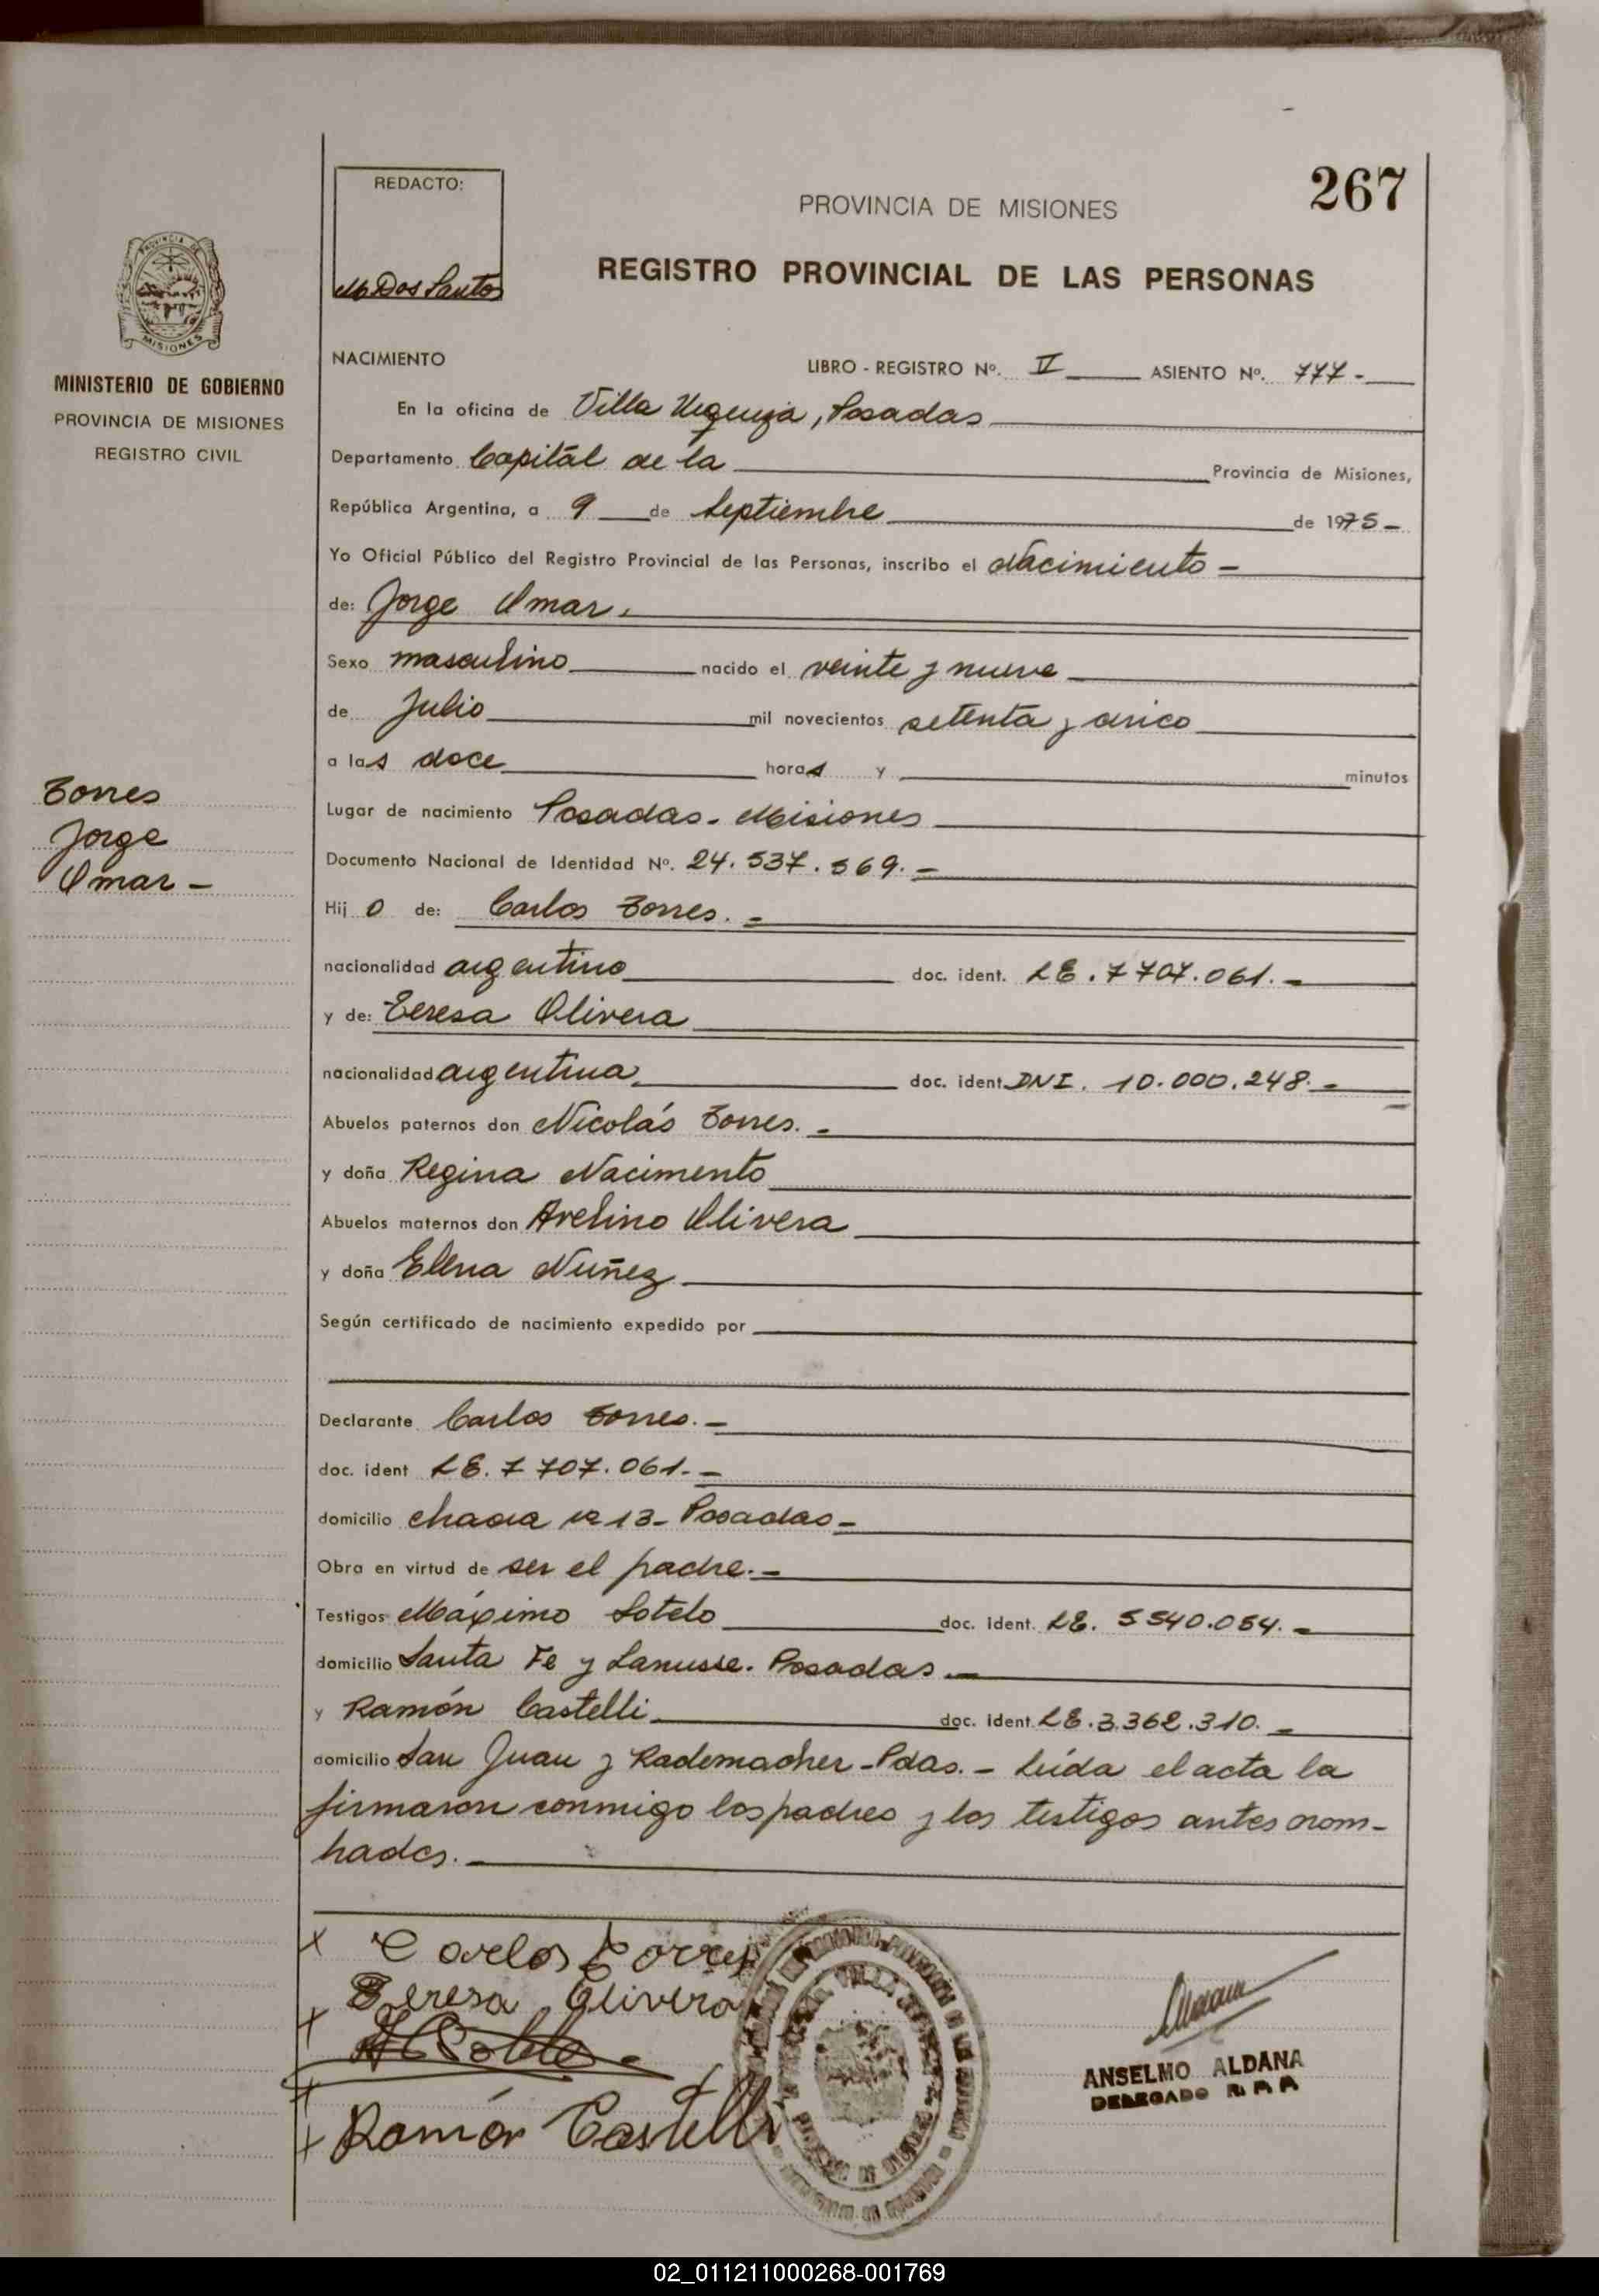 267
REDACTO:
M Dos Santos
PROVINCIA DE MISIONES
REGISTRO PROVINCIAL DE LAS PERSONAS
PROVINCIA DE
MISIONES
MINISTERIO DE GOBIERNO
PROVINCIA DE MISIONES
REGISTRO CIVIL
Torres
Jorge
Omar -
NACIMIENTO LIBRO - REGISTRO Nº. V ASIENTO Nº. 777-
En la oficina de Villa Urquiza, Posadas
Departamento Capital de la Provincia de Misiones,
República Argentina, a 9 de Septiembre de 1975-
Yo Oficial Público del Registro Provincial de las Personas, inscribo el Nacimiento -
de: Jorge Omar.
Sexo masculino nacido el veinte y nueve
de Julio mil novecientos setenta y cinco
a las doce horas y minutos
Lugar de nacimiento Posadas - Misiones
Documento Nacional de Identidad Nº. 24.537.569.-
Hij o de: Carlos Torres. -
nacionalidad argentino doc. ident. LE. 7707.061.-
y de: Teresa Olivera
nacionalidad argentina doc. ident DNI. 10.000.248.-
Abuelos paternos don Nicolás Torres. -
y doña Regina Nacimento
Abuelos maternos don Avelino Olivera
y doña Elena Nuñez
Según certificado de nacimiento expedido por
Declarante Carlos Torres. -
doc. ident LE. 7 707.061. -
domicilio chacra 13 - Posadas -
Obra en virtud de ser el padre. -
Testigos Máximo Sotelo doc. ident. LE. 5540.054. -
domicilio Santa Fe y Lanusse. Posadas. -
y Ramón Castelli doc. ident. LE. 3.362.310. -
domicilio San Juan y Rademacher - Pdas. - Leída el acta la
firmaron conmigo los padres y los testigos antes nom-
brados. -
x Carlos Torres
Teresa Olivera
x
x Ramón Castelli
ANSELMO ALDANA
DELEGADO R. P. P.
02_011211000268-001769